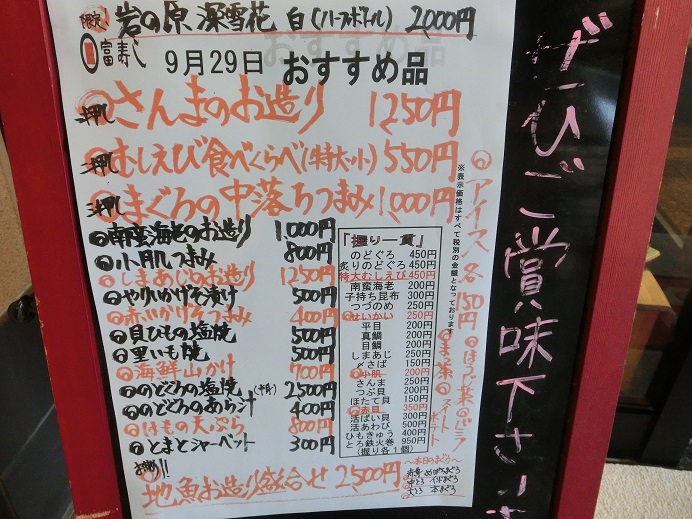 限定 岩の原 深雪花 白(ハーフボトル) 2,000円
富寿し 9月29日 おすすめ品
一押し さんまのお造り 1250円
二押し むしえび食べくらべ(特大セット) 550円
三押し まぐろの中落ちつまみ 1,000円
南蛮海老のお造り 1,000円
小肌つまみ 800円
しまあじのお造り 1250円
やりいかげそ漬け 500円
赤いかげそつまみ 400円
貝ひもの塩焼 500円
里いも焼 500円
海鮮山かけ 700円
のどぐろの塩焼(半身) 2500円
のどぐろのあら汁 400円
はもの天ぷら 800円
とまとシャーベット 300円
地魚お造り盛合せ 2,500円
「握り一貫」
のどぐろ 450円
炙りのどぐろ 450円
特大むしえび 450円
南蛮海老 200円
子持ち昆布 300円
つづのめ 250円
せいかい 250円
平目 200円
真鯛 200円
目鯛 200円
しまあじ 250円
〆さば 150円
小肌 200円
さんま 250円
つぶ貝 200円
ほたて貝 150円
赤貝 350円
活ばい貝 300円
活あわび 500円
ひもきゅう 400円
とろ鉄火巻 950円
(握り各1個)
※表示価格はすべて税別の金額となっております。
アイス 各150円
ほうじ茶
バニラ
まっ茶
スイートポテト
〜本日のまぐろ〜
赤身 めばちまぐろ
中とろ
大とろ 本まぐろ
ぜひご賞味下さい